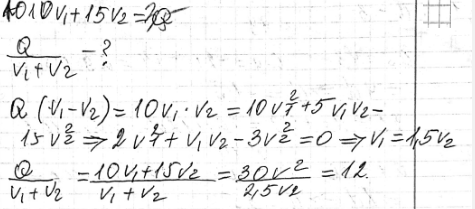 10v₁+15v₂=Q
Q/(v₁+v₂) - ?
Q(v₁-v₂)=10v₁·v₂=10v₁²+5v₁v₂-
15v₂² ⇒ 2v₁²+v₁v₂-3v₂²=0 ⇒ v₁=1,5v₂
Q/(v₁+v₂) = (10v₁+15v₂)/(v₁+v₂) = 30v²/2,5v₂ = 12.